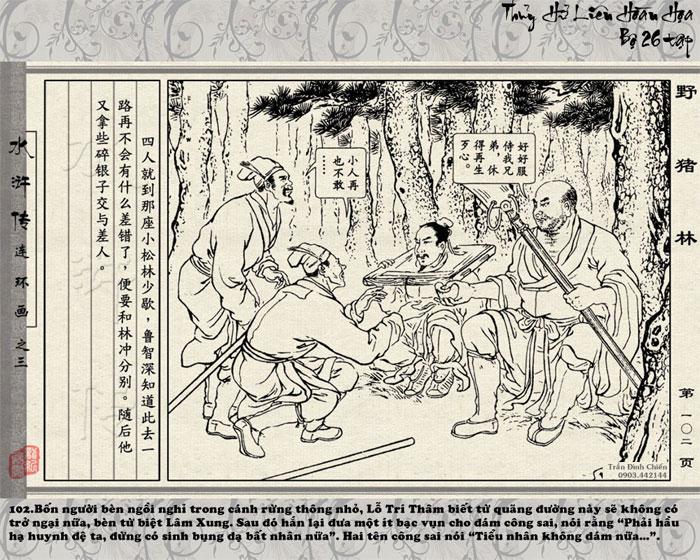 Thủy Hử Liên Hoàn Họa
Bộ 26 tập
野猪林
第一〇二页
水浒传连环画之三
好好服
侍我兄
弟，休
得再生
歹心。
小人再
也不敢
……
四人就到那座小松林少歇，鲁智深知道此去一
路再不会有什么差错了，便要和林冲分别。随后他
又拿些碎银子交与差人。
Trần Đình Chiến
0903.442144
102.Bốn người bèn ngồi nghỉ trong cánh rừng thông nhỏ, Lỗ Trí Thâm biết từ quãng đường này sẽ không có
trở ngại nữa, bèn từ biệt Lâm Xung. Sau đó hắn lại đưa một ít bạc vụn cho đám công sai, nói rằng “Phải hầu
hạ huynh đệ ta, đừng có sinh bụng dạ bất nhân nữa”. Hai tên công sai nói “Tiểu nhân không dám nữa...”.